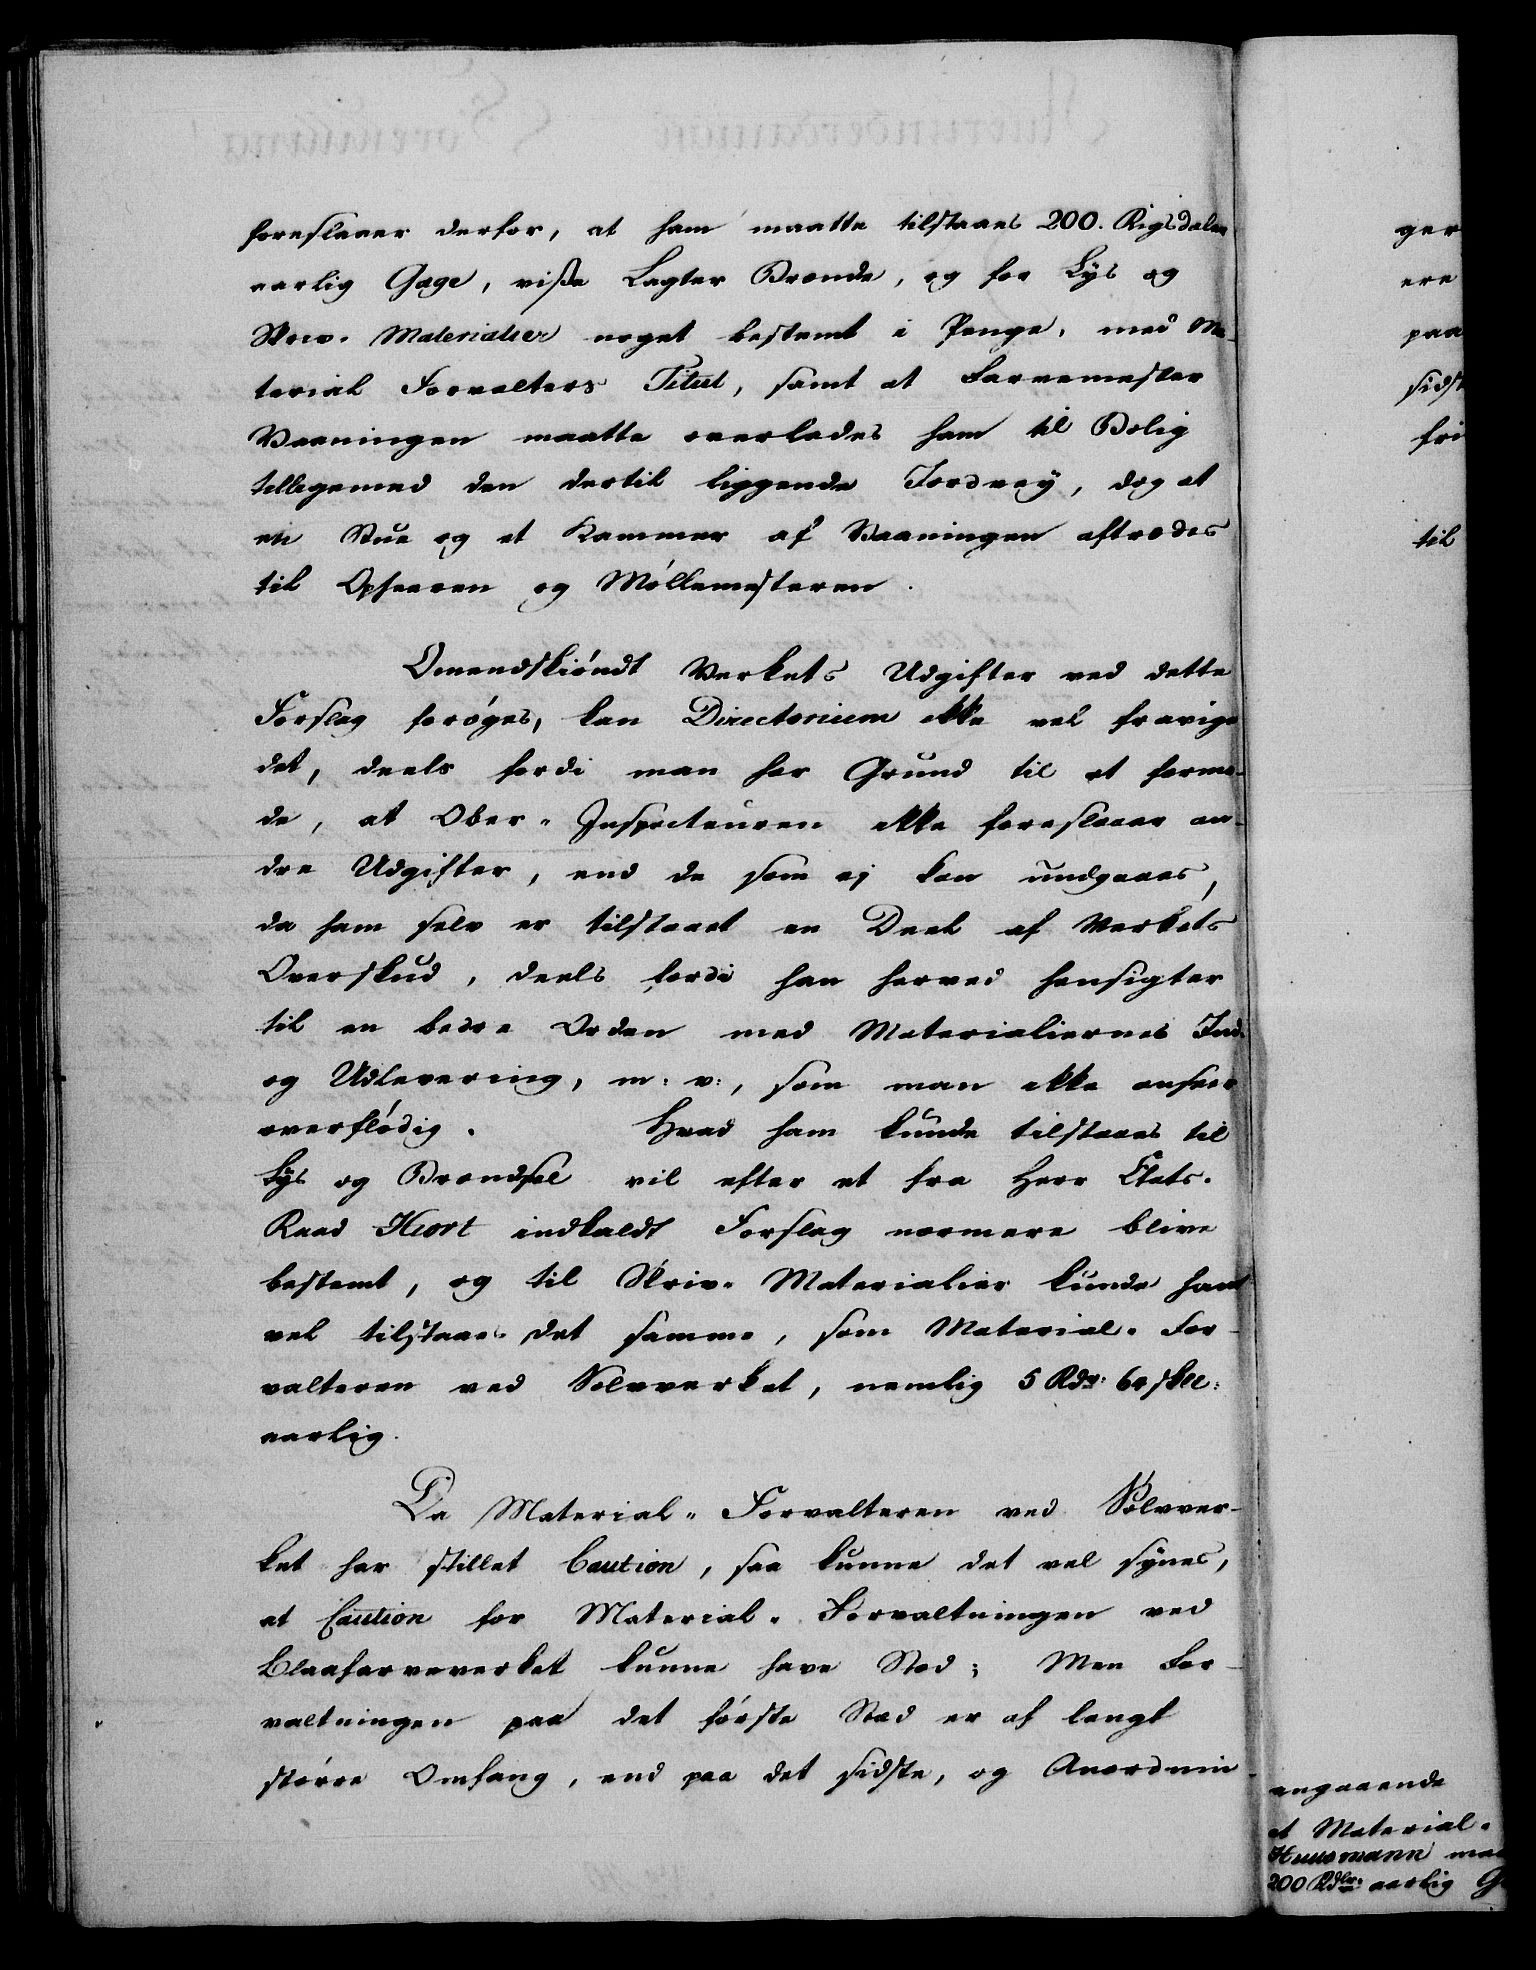 foreslaaer derfor, at ham maatte tilstaaes 200. Rigsdaler
aarlig Gage, visse Lagter Brænde, og for Lys og
Skriv. Materialier noget bestemt i Penge, med Ma-
terial Forvalters Titul, samt at Farvemester
Vaaningen maatte overlades ham til Bolig
tilligemed den dertil liggende Jordvey, dog at
en Stue og et Kammer af Vaaningen aftrædes
til Opseeren og Møllemesteren.
Omendskiøndt Verkets Udgifter ved dette
Forslag forøges, kan Directorium ikke vel fravige
det, deels fordi man har Grund til at formo-
de, at Ober-Inspecteuren ikke foreslaaer an-
dre Udgifter, end de som ej kan undgaaes,
da ham selv er tilstaaet en Deel af Verkets
Overskud, deels fordi han herved hensigter
til en bedre Orden med Materialiernes Ind-
og Udlevering, m: v:, som man ikke anseer
overflødig. Hvad ham kunde tilstaaes til
Lys og Brændsel vil efter et fra Herr Etats-
Raad Hiort indkaldt Forslag nærmere blive
bestemt, og til Skriv-Materialier kunde ham
vel tilstaaes det samme, som Material-For-
valteren ved Sølvverket, nemlig 5 Rdr: 64 skll:
aarlig.
Da Material-Forvalteren ved Sølvver-
ket har stillet Caution, saa kunne det vel synes,
at Caution for Material-Forvaltningen ved
Blaafarveverket kunne have Sted; Men For-
valtningen paa det første Sted er af langt
større Omfang, end paa det sidste, og Anordnin-
ger
ere
paa
sidst
fri
til
angaaende
at Material-
Huusmann maa
200 Rdlr. aarlig